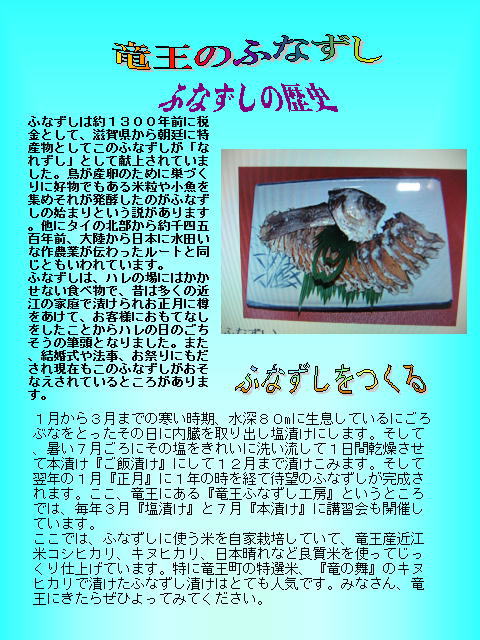 竜王のふなずし
ふなずしの歴史
ふなずしは約１３００年前に税
金として、滋賀県から朝廷に特
産物としてこのふなずしが「な
れずし」として献上されていま
した。鳥が産卵のために巣づく
りに好物でもある米粒や小魚を
集めそれが発酵したのがふなず
しの始まりという説があります
。他にタイの北部から約千四五
百年前、大陸から日本に水田い
な作農業が伝わったルートと同
じともいわれています。
ふなずしは、ハレの場にはかか
せない食べ物で、昔は多くの近
江の家庭で漬けられお正月に樽
をあけて、お客様におもてなし
をしたことからハレの日のごち
そうの筆頭となりました。また
、結婚式や法事、お祭りにもだ
され現在もこのふなずしがおそ
なえされているところがありま
す。
ふなずし
ふなずしをつくる
１月から３月までの寒い時期、水深８０ｍに生息しているにごろ
ぶなをとったその日に内臓を取り出し塩漬けにします。そして
、暑い７月ごろにその塩をきれいに洗い流して１日間乾燥させ
て本漬け『ご飯漬け』にして１２月まで漬けこみます。そして
翌年の１月『正月』に１年の時を経て待望のふなずしが完成さ
れます。ここ、竜王にある『竜王ふなずし工房』というところ
では、毎年３月『塩漬け』と７月『本漬け』に講習会も開催し
ています。
ここでは、ふなずしに使う米を自家栽培していて、竜王産近江
米コシヒカリ、キヌヒカリ、日本晴れなど良質米を使ってじっ
くり仕上げています。特に竜王町の特選米、『竜の舞』のキヌ
ヒカリで漬けたふなずし漬けはとても人気です。みなさん、竜
王にきたらぜひよってみてください。